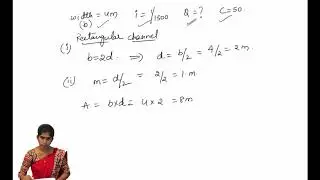 width = 4m i = 1/1500 Q = ? C = 50.
(b)
Rectangular channel
(i) b = 2d. ⇒ d = b/2 = 4/2 = 2m.
(ii) m = d/2 = 2/2 = 1 m
A = b×d = 4 × 2 = 8m